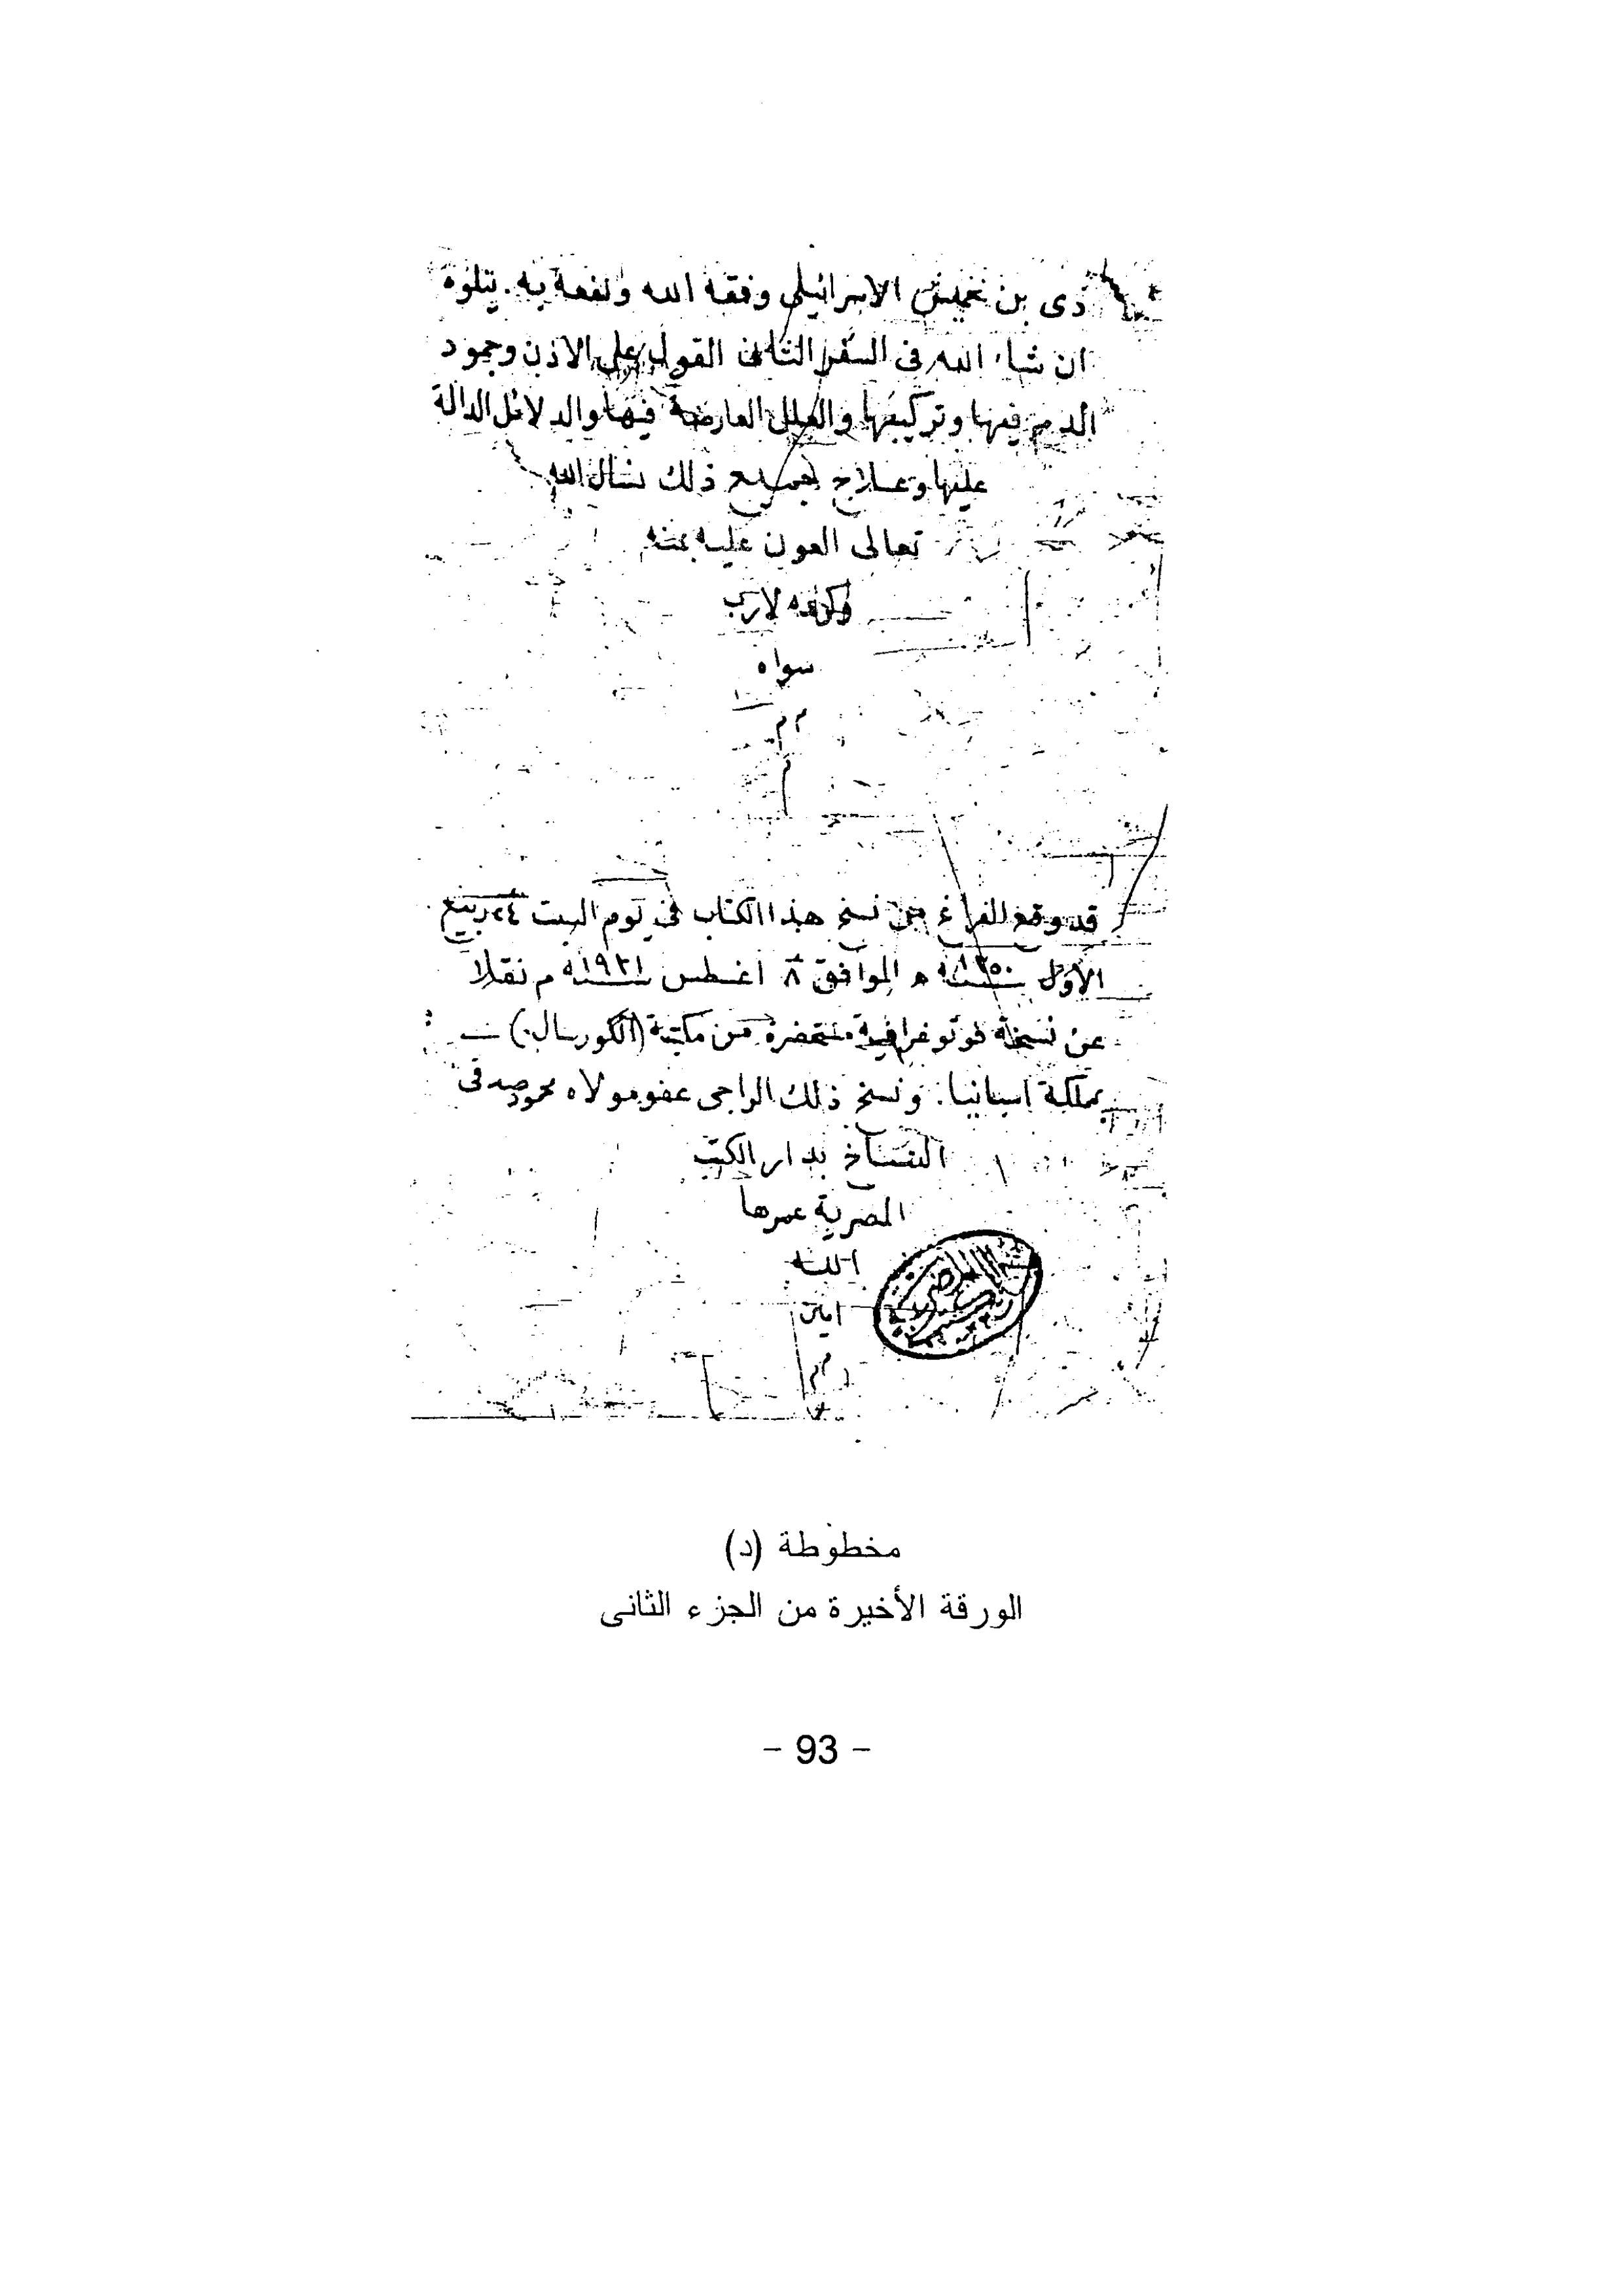 دى بن نخميش الاسرائيلى وفقه الله ونفعه به. يتلوه
ان شاء الله فى السفر الثالث القول على الاذن وجمود
الدم فيها وتركيبها والعلل العارضة فيها والدلائل الدالة
عليها وعلاج جميع ذلك نسال الله
تعالى العون عليه بمنه
وكرمه لارب
سواه
م م
م
قد وقع الفراغ من نسخ هذا الكتاب فى يوم السبت ٢٤ ربيع
الأول سنة ١٣٥٠ ه الموافق ٨ اغسطس سنة ١٩٣١ م نقلا
عن نسخة فوتوغرافية مستحضرة من مكتبة (الكوريال)
بمملكة اسبانيا. ونسخ ذلك الراجى عفو مولاه محمود صدقى
النساخ بدار الكتب
المصرية عمرها
الله
امين
م م
مخطوطة (د)
الورقة الأخيرة من الجزء الثانى
- 93 -